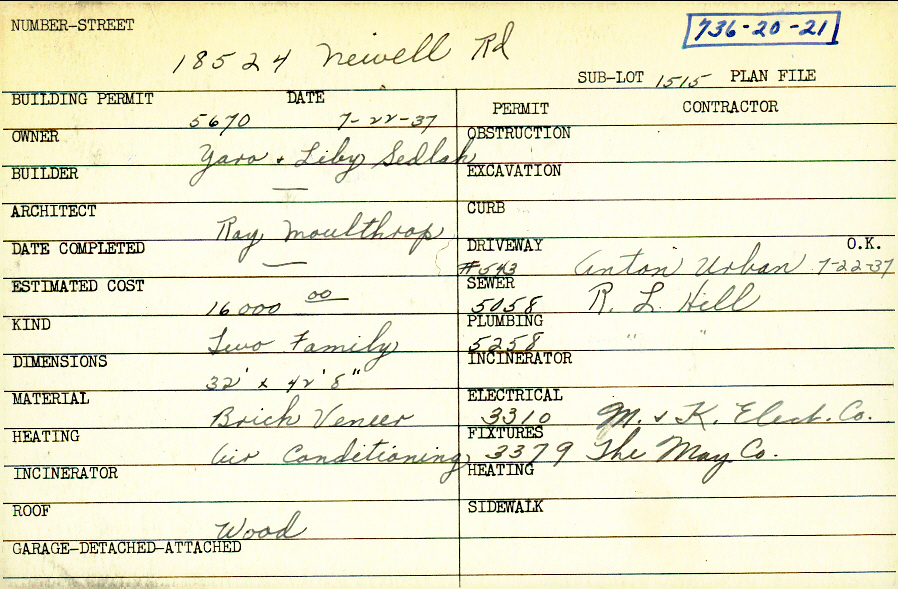 NUMBER-STREET 18524 Newell Rd 736-20-21
SUB-LOT 1515 PLAN FILE
BUILDING PERMIT 5670 DATE 7-22-37
OWNER Yaro + Liby Sedlak
BUILDER —
ARCHITECT Ray Moulthrop
DATE COMPLETED —
ESTIMATED COST 16000 00
KIND Two Family
DIMENSIONS 32' x 42' 8"
MATERIAL Brick Veneer
HEATING Air Conditioning
INCINERATOR
ROOF Wood
GARAGE-DETACHED-ATTACHED
PERMIT CONTRACTOR
OBSTRUCTION
EXCAVATION
CURB
DRIVEWAY O.K.
#543 Anton Urban 7-22-37
SEWER
5058 R. L. Hill
PLUMBING
5258 " "
INCINERATOR
ELECTRICAL
3310 M. & K. Elect. Co.
FIXTURES
3379 The May Co.
HEATING
SIDEWALK